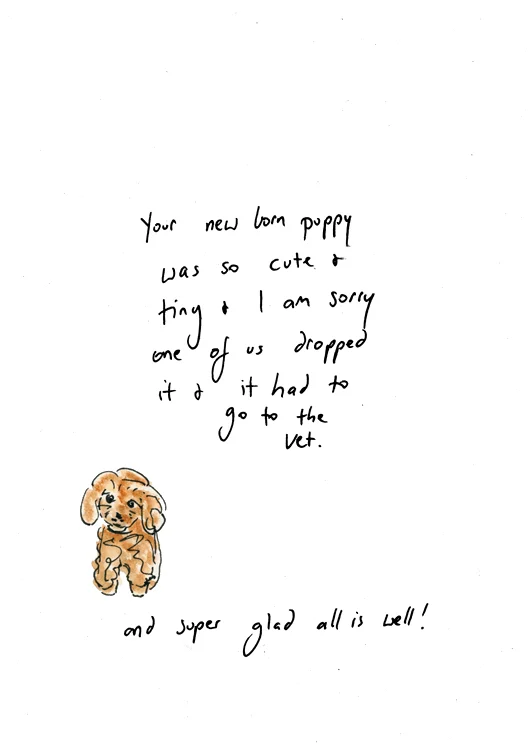 Your new born puppy
was so cute &
tiny & I am sorry
one of us dropped
it & it had to
go to the
vet.
and super glad all is well!